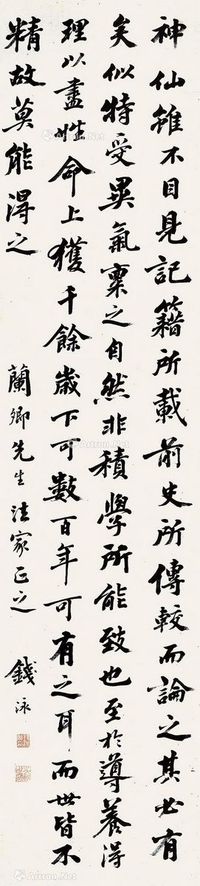 神仙雖不目見記籍所載前史所傳較而論之其必有
矣似特受異氣稟之自然非積學所能致也至於導養得
理以盡性命上獲千餘歲下可數百年可有之耳而世皆不
精故莫能得之
蘭卿先生法家正之
錢泳